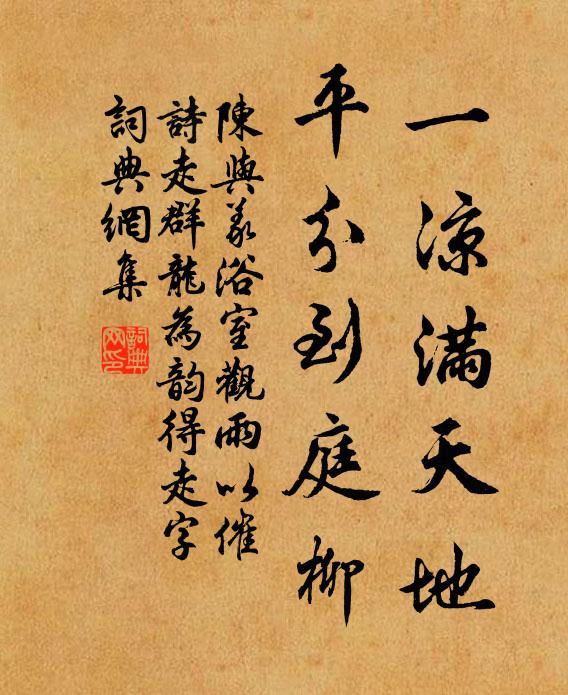 一凉滿天地
平分到庭柳
陳與義浴室觀雨以催
詩走群龍為韵得走字
詞典網集
詞典网印